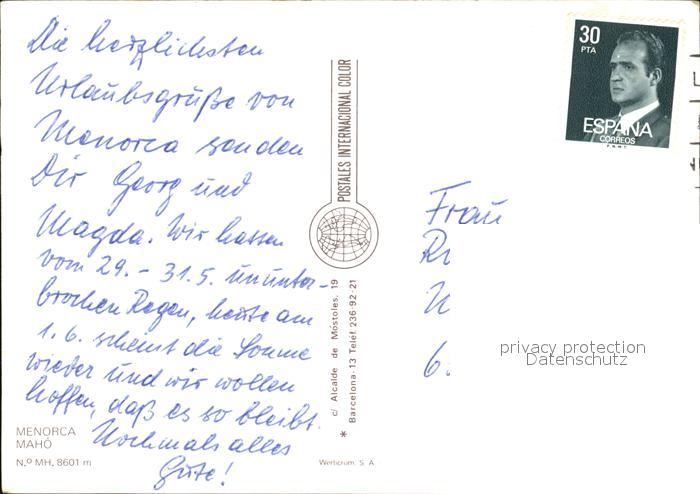 Die herzlichsten
Urlaubsgrüße von
Menorca senden
Dir Georg und
Magda. Wir hatten
vom 29. - 31.5. ununter-
brochen Regen, heute am
1.6. scheint die Sonne
wieder und wir wollen
hoffen, daß es so bleibt.
Nochmals alles
Gute!
MENORCA
MAHÓ
N.º MH. 8601 m
POSTALES INTERNACIONAL COLOR
* c/ Alcalde de Móstoles, 19
Barcelona-13 Teléf. 236-92-21
Werticrom. S. A.
30
PTA
ESPAÑA
CORREOS
F.N.M.T.
Frau
6.
privacy protection
Datenschutz